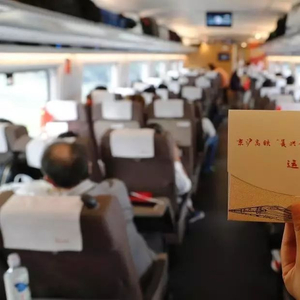 京沪高铁"复兴
运